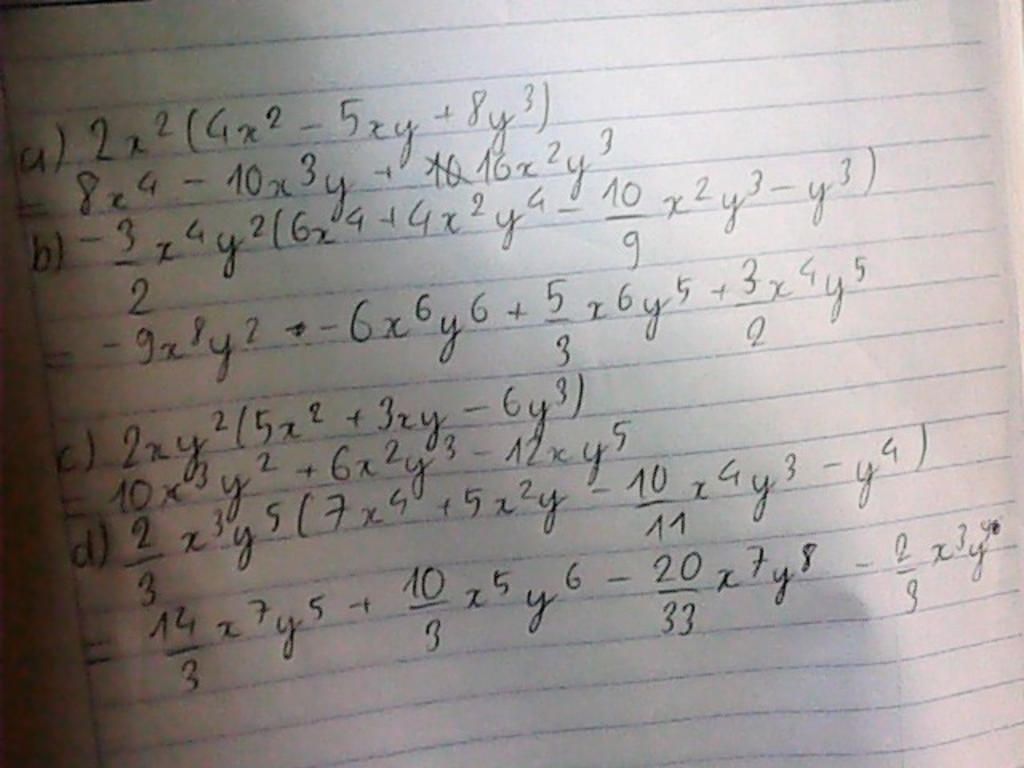 a) 2x²(4x² - 5xy + 8y³)
= 8x⁴ - 10x³y + 16x²y³
b) -3/2 x⁴y²(6x⁴ + 4x²y⁴ - 10/9 x²y³ - y³)
= -9x⁸y² - 6x⁶y⁶ + 5/3 x⁶y⁵ + 3/2 x⁴y⁵
c) 2xy²(5x² + 3xy - 6y³)
= 10x³y² + 6x²y³ - 12xy⁵
d) 2/3 x³y⁵(7x⁴ + 5x²y - 10/11 x⁴y³ - y⁴)
= 14/3 x⁷y⁵ + 10/3 x⁵y⁶ - 20/33 x⁷y⁸ - 2/3 x³y